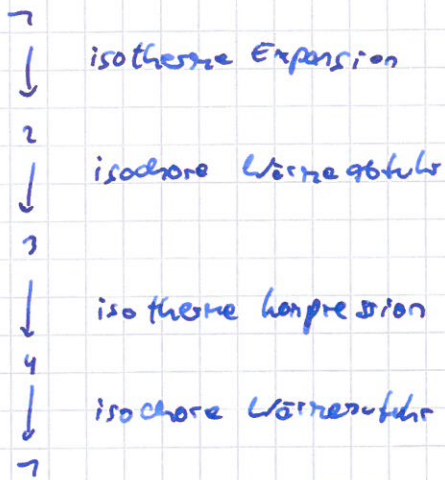 1
isotherme Expansion
2
isochore Wärmeabfuhr
3
isotherme Kompression
4
isochore Wärmezufuhr
1